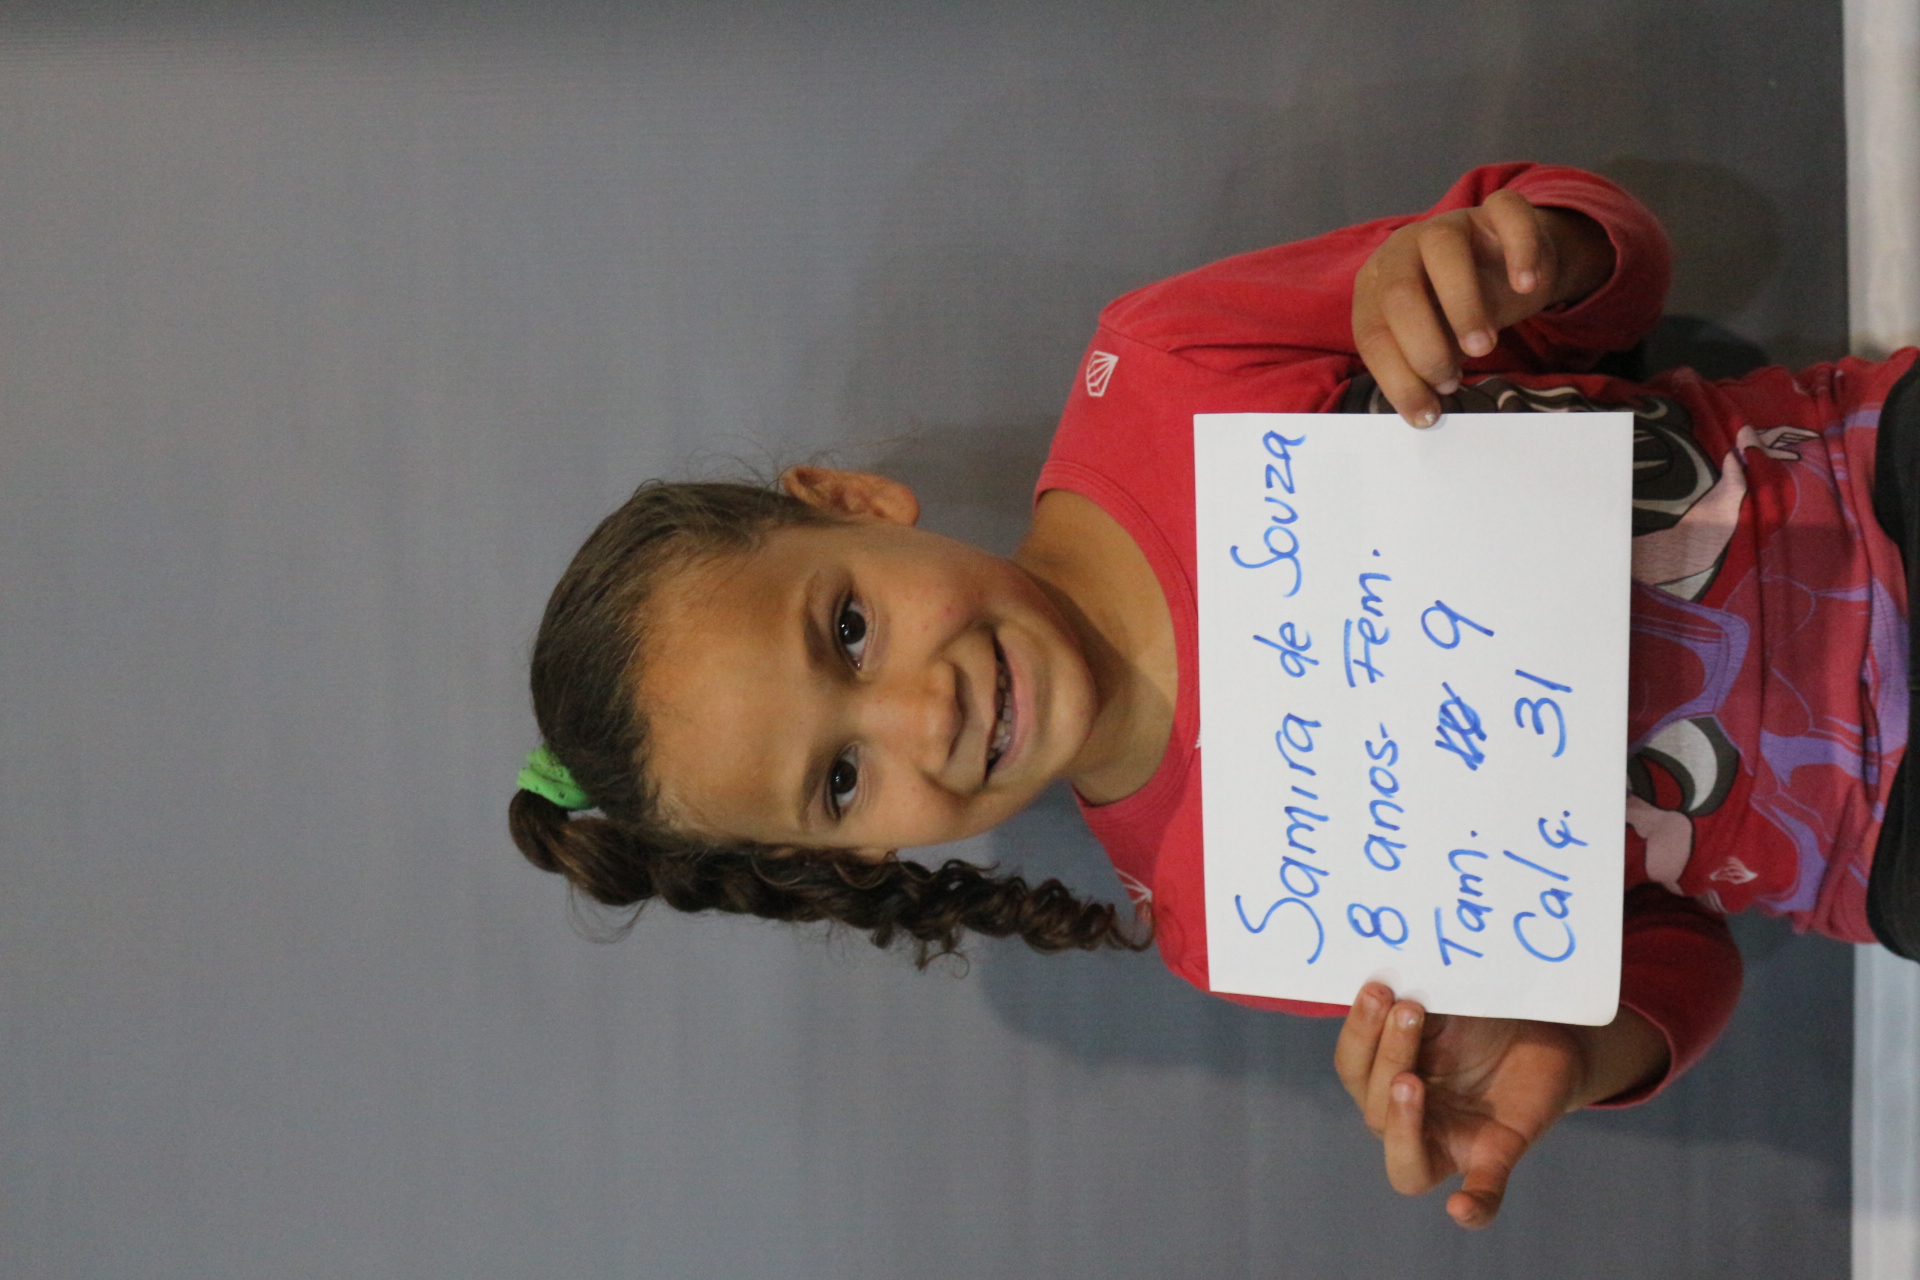 Samira de Souza
8 anos- Fem.
Tam. 9
Calç. 31